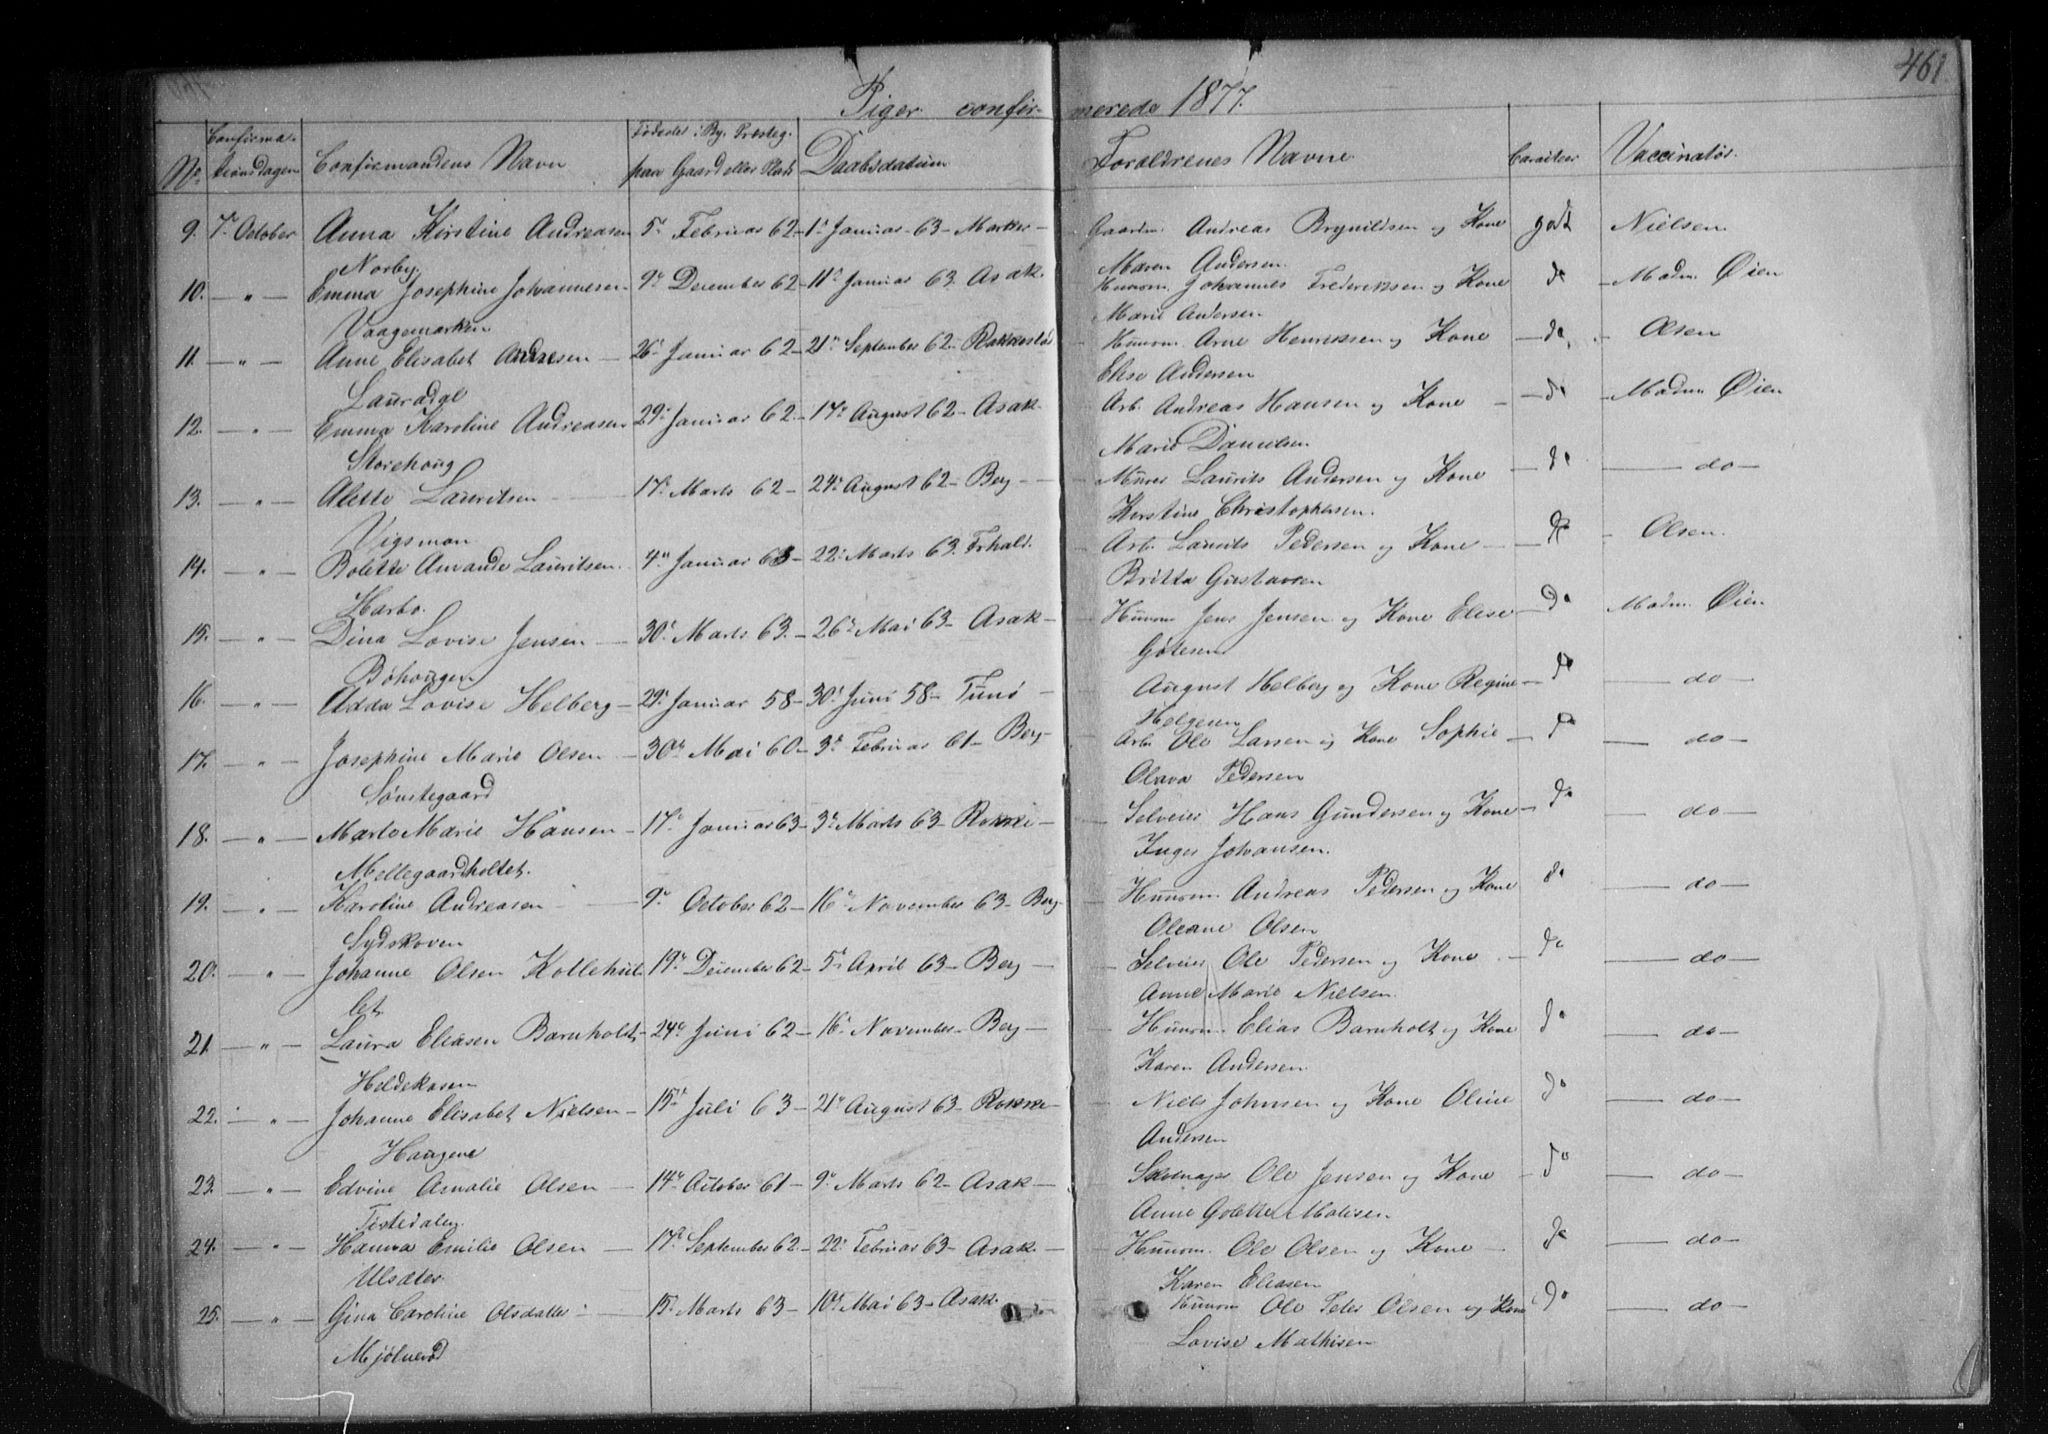 461
Piger confirmerede 1877.
No. Confirmationsdagen Confirmandens Navn Fødested i By, Præsteg. paa Gaard eller Plads Daabsdatum Forældrenes Navne Caracteer Vaccinatør.
9. 7de October Anna Kirstine Andreasen 5te Februar 62 - 1te Januar 63 - Marker - Gaardm. Andreas Brynildsen og Kone godt Nielsen
Norby. Maren Andersen
10. - " - Emma Josephine Johannesen - 9de December 62 - 11te Januar 63. Asak. Huusm. Johannes Frederiksen og Kone do - Madm. Øien
Vaagemarken Marie Andersen
11. - " - Anne Elisabet Andresen - 26de Januar 62 - 21de September 62. Rakkestad Huusm. Arne Henriksen og Kone - do - Olsen
Lauradal Elise Andersen
12. - " - Emma Karoline Andreasen 29de Januar 62. - 17de August 62 - Asak Arb. Andreas Hansen og Kone - do - Madm. Øien
Storehaug Marie Danielsen
13. - " - Alette Lauritsen - 17de Marts 62 - 24de August 62 - Berg - Murer Laurits Andersen og Kone - do - do -
Vigsmon Kirstine Christophersen.
14. - " - Bolette Amande Lauritsen. 4de Januar 63 - 22de Marts 63. Frhald. - Arb. Laurits Pedersen og Kone - do - Olsen.
Harbo. Britta Gustavsen
15. - " - Dina Lovise Jensen - 30te Marts 63. - 26de Mai 63 - Asak - Huusm Jens Jensen og Kone Elise - do Madm. Øien
Bøhaugen Gøtesen
16. - " - Adda Lovise Helberg - 29de Januar 58 - 30te Juni 58 - Tunø - August Helberg og Kone Regine - do - do -
Helgesen
17. - " - Josephine Marie Olsen - 30te Mai 60 - 3de Februar 61 - Berg - Arb. Ole Larsen og Kone Sophie - do - do -
Sønstegaard Olava Pedersen
18. - " - Marte Marie Hansen - 17de Januar 63 - 3de Marts 63 - Rokke - Selveier Hans Gundersen og Kone - do - do -
Mellegaardholtet. Inger Johansen.
19. - " - Karoline Andreasen - 9de October 62 - 16de November 63 - Berg - Huusm. Andreas Pedersen og Kone do - do -
Sydskoven Oleane Olsen
20. - " - Johanne Olsen Kollehul - 19de December 62 - 5te April 63 - Berg - Selveier Ole Pedersen og Kone - do - do -
let Anne Marie Nielsen.
21. - " - Laura Eliasen Barnholdt - 24de Juni 62 - 16de November - Berg - Huusm. Elias Barnholt og Kone do - do -
Heldekasen Karen Andersen
22. - " - Johanne Elisabet Nielsen - 15de Juli 63 - 21de August 63 - Rokke - Niels Johnsen og Kone Oline do - do -
Haugene Andersen
23. - " - Edvine Amalie Olsen - 14de October 61 - 9de Marts 62 - Asak - Skomager Ole Jensen og Kone - do - do -
Tistedalen. Anne Golette Matisen
24. - " - Hanna Emilie Olsen - 17de September 62 - 22de Februar 63 - Asak. - Huusm. Ole Olsen og Kone - do - do -
Ulsæter Karen Eliasen
25. - " - Gina Caroline Olsdatter - 15de Marts 63 - 10de Mai 63 - Asak. Huusm Ole Peter Olsen og Kone do - do -
Mjølnerød Lovise Mathisen